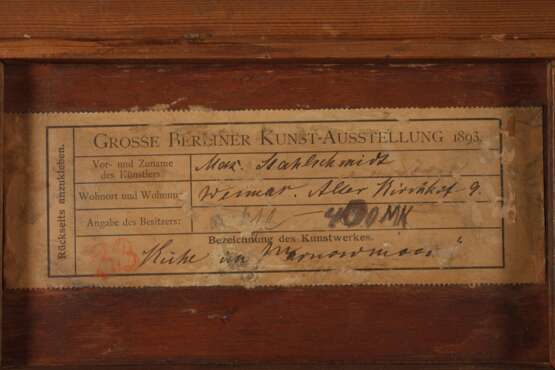 Rückseits anzukleben.
GROSSE BERLINER KUNST-AUSSTELLUNG 1893.
Vor- und Zuname
des Künstlers
Max. Stahlschmidt
Wohnort und Wohnung
Weimar. Alter Kirchhof 9.
Angabe des Besitzers:
400 MK
Bezeichnung des Kunstwerkes.
33
Kühe im